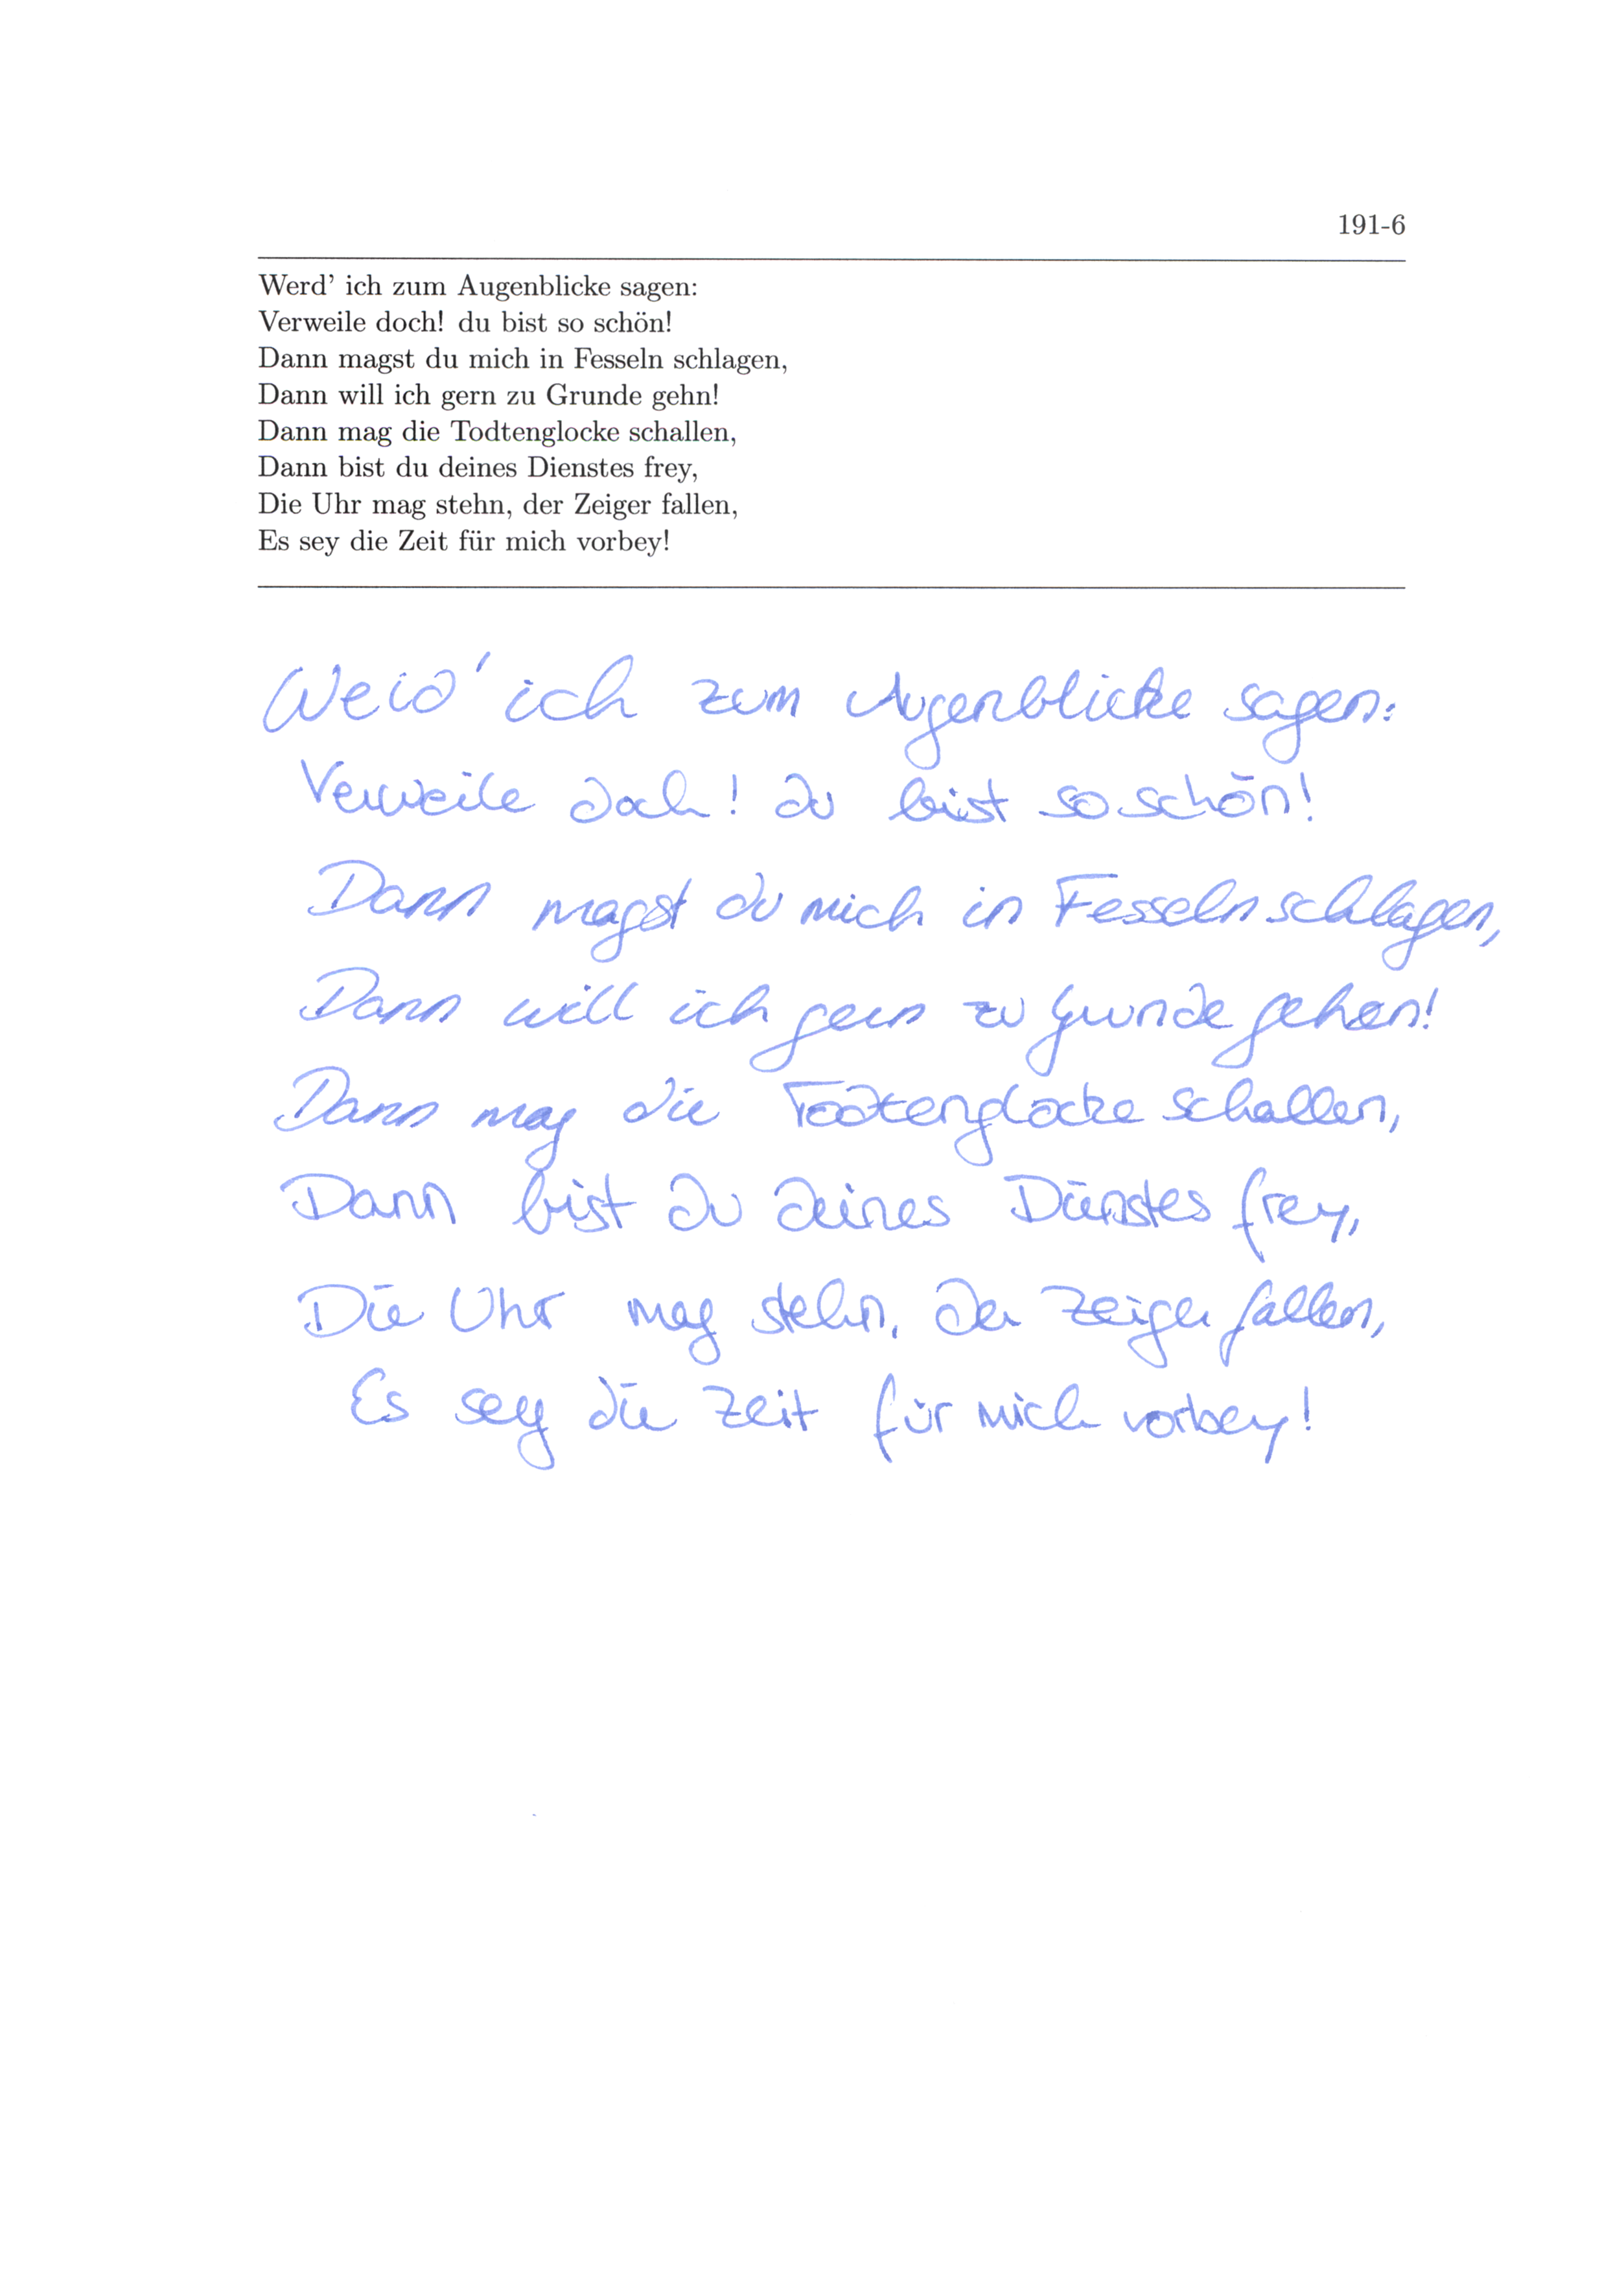 191-6
Werd' ich zum Augenblicke sagen:
Verweile doch! du bist so schön!
Dann magst du mich in Fesseln schlagen,
Dann will ich gern zu Grunde gehn!
Dann mag die Todtenglocke schallen,
Dann bist du deines Dienstes frey,
Die Uhr mag stehn, der Zeiger fallen,
Es sey die Zeit für mich vorbey!
Werd' ich zum Augenblicke sagen:
Verweile doch! du bist so schön!
Dann magst du mich in Fesseln schlagen,
Dann will ich gern zu Grunde gehen!
Dann mag die Todtenglocke schallen,
Dann bist du deines Dienstes frey,
Die Uhr mag stehn, der Zeiger fallen,
Es sey die Zeit für mich vorbey!